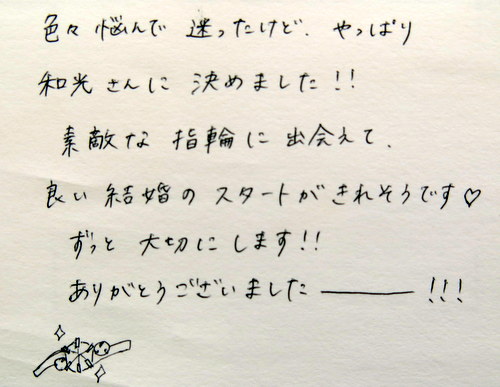 色々 悩んで 迷ったけど、やっぱり
和光さんに 決めました!!
素敵な 指輪に 出会えて、
良い 結婚の スタートがきれそうです♡
ずっと 大切にします!!
ありがとうございました――!!!